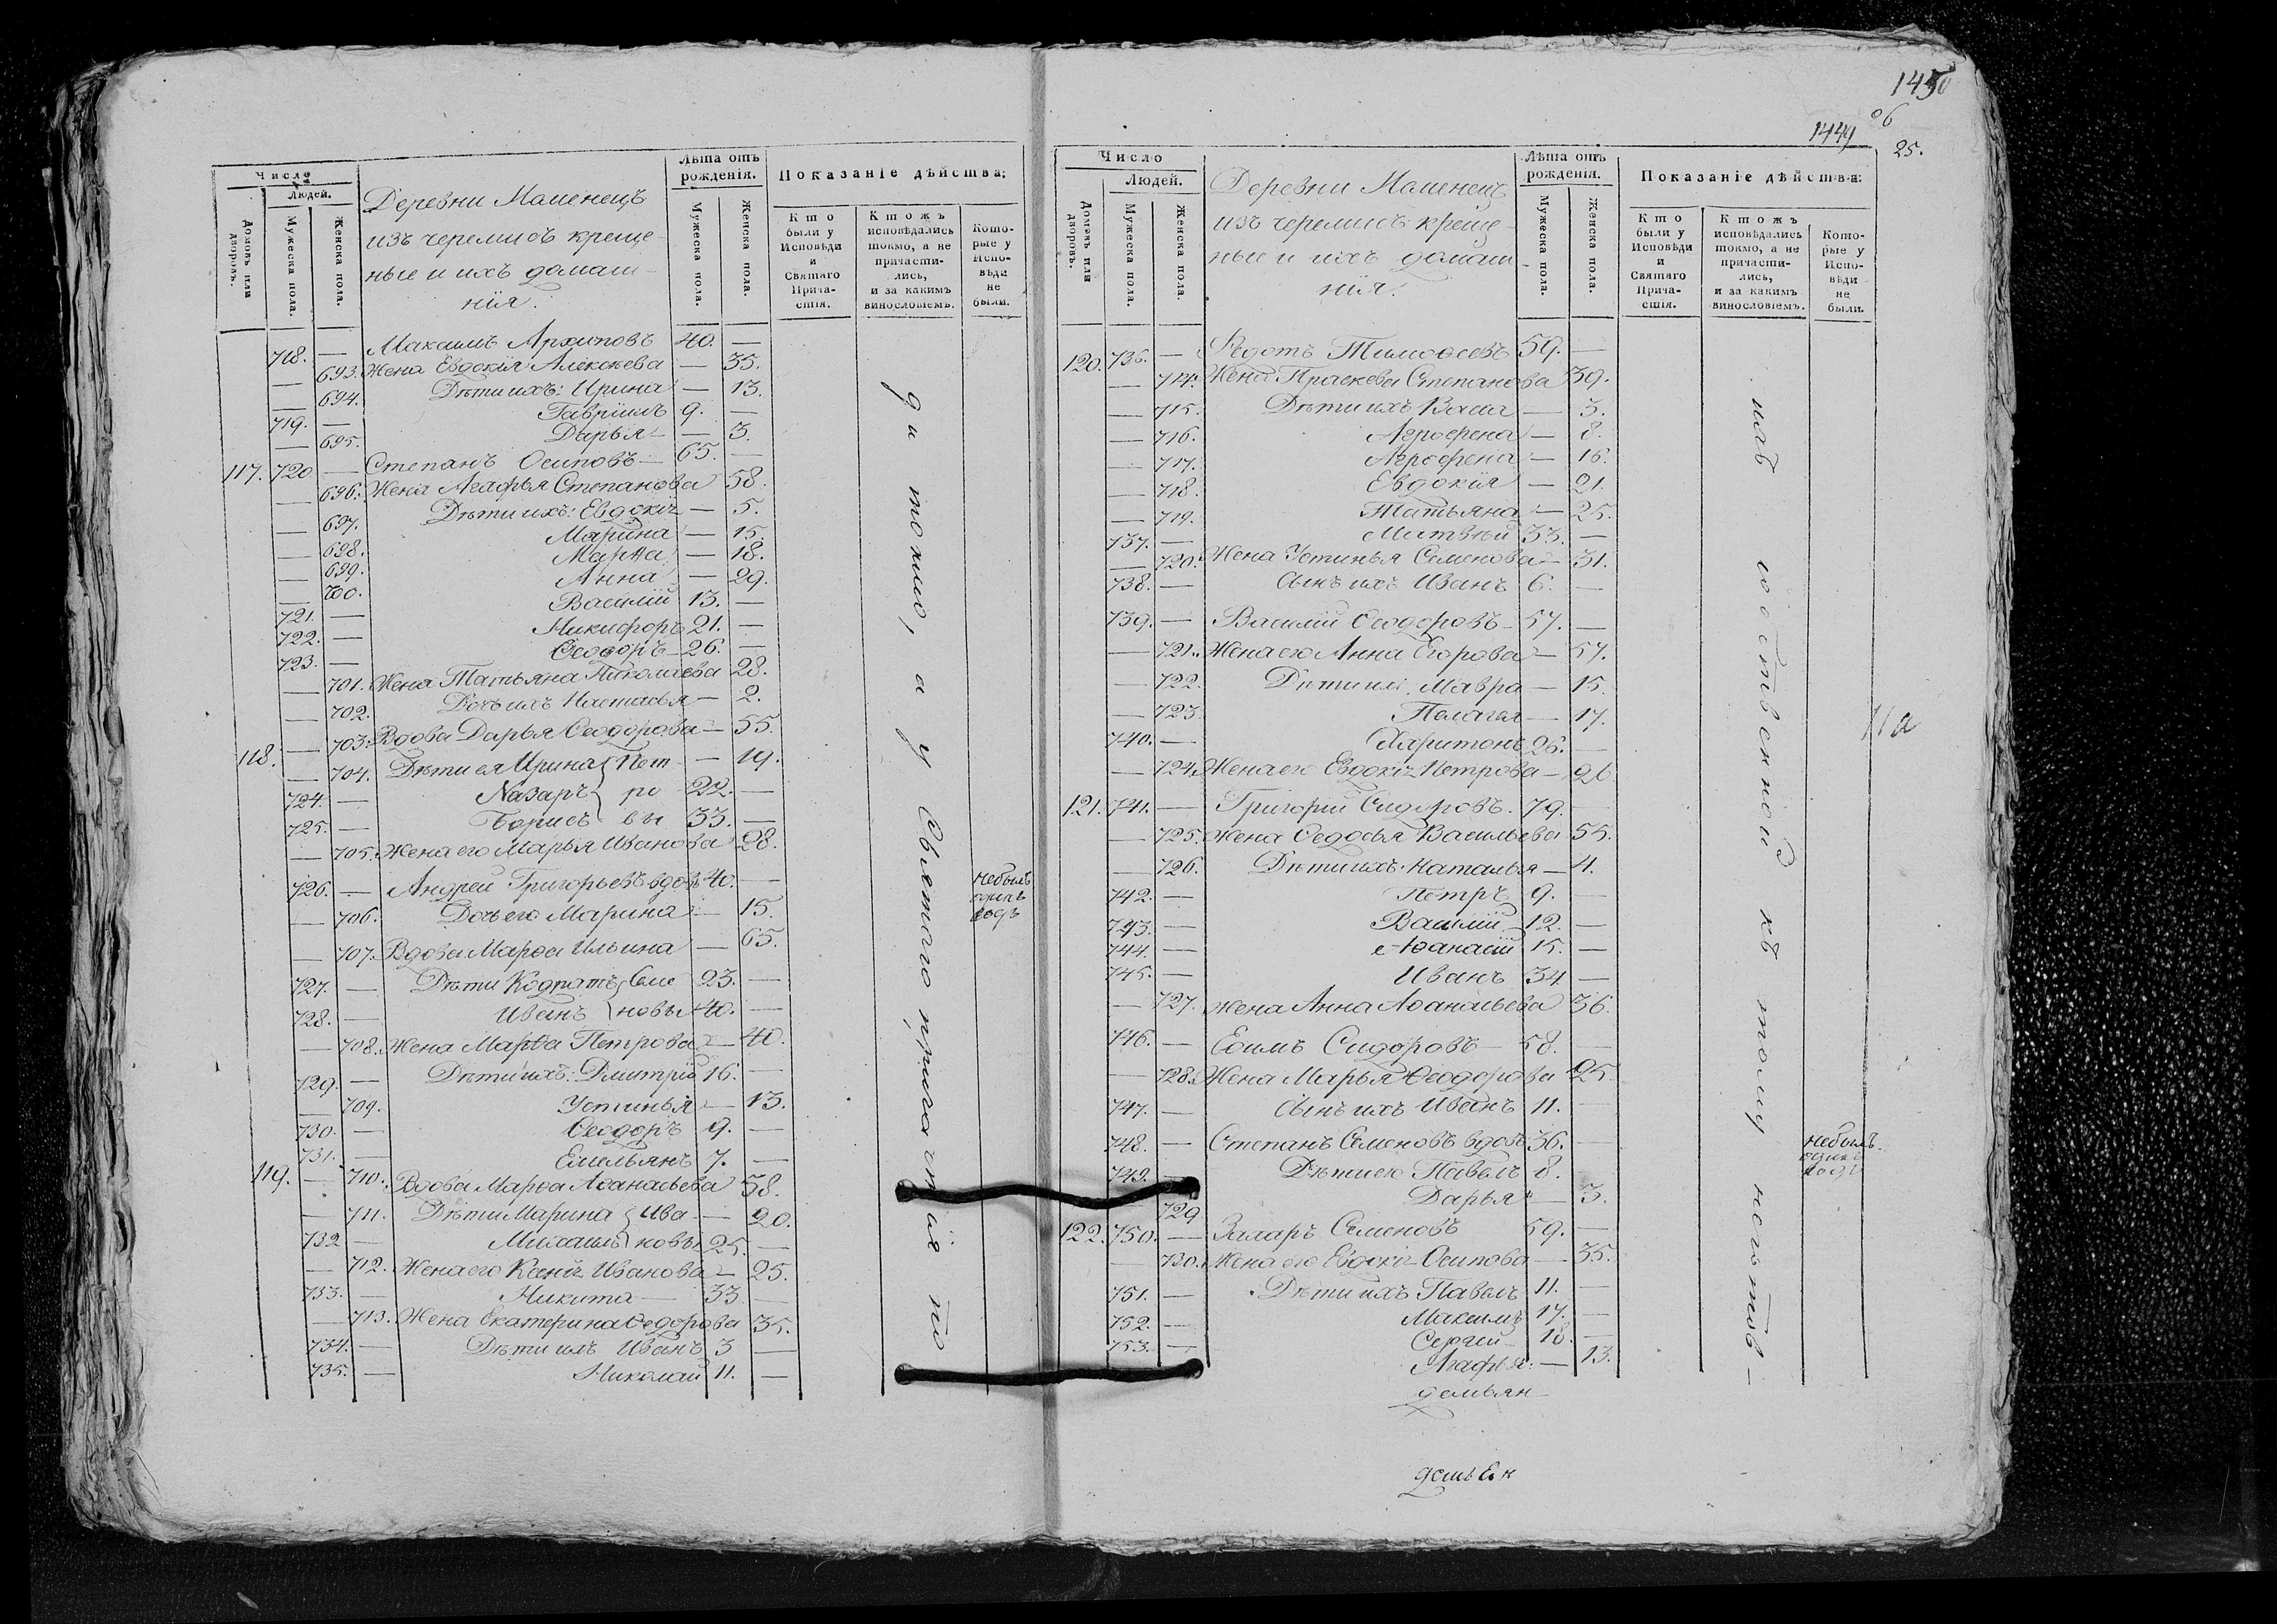 1450
об
1449
25.
Число
Людей.
Домовъ или дворовъ.
Мужеска пола.
Женска пола.
Деревни
изъ черемисъ креще-
ные и ихъ домаш-
нія.
Лѣта отъ рожденія.
Мужеска пола.
Женска пола.
Показаніе дѣйства:
Кто были у Исповѣди и Святаго Прича-стія.
Ктожъ исповѣдались токмо, а не причасти-лись, и за какимъ винословіемъ.
Кото-рые у Испо-вѣди не были.
718. — Максимъ Архиповъ 40. —
— 693. Жена Евдокія Алексѣева — 35.
— 694. Дѣти ихъ: Ирина — 13.
719. — Гавріилъ 9. —
— 695. Дарья — 3.
117. 720 — Степанъ Осиповъ 65. —
— 696. Жена Агафья Степанова 58.
— 697. Дѣти ихъ: Евдокія — 5.
— 698. Марина — 15.
— 699. Марѳа — 18.
— 700. Анна — 29.
721. — Василій 13. —
722. — Никифоръ 21. —
723. — Ѳеодоръ 26. —
— 701. Жена Татьяна Николаева 28.
— 702. Дочь ихъ Настасья — 2.
118. — 703. Вдова Дарья Ѳеодорова — 55.
— 704. Дѣти ея Ирина Пет — 19.
724. — Назаръ ро 22. —
725. — Борисъ вы 33. —
— 705. Жена его Марья Иванова 28.
726. — Андрей Григорьевъ вдовъ 40. — небылъ одинъ годъ
— 706. Дочь его Марина — 15.
— 707. Вдова Марѳа Ильина — 65.
727. — Дѣти Кодратъ Семе 23. —
728. — Иванъ новы 40. —
— 708. Жена Марѳа Петрова — 40.
729. — Дѣти ихъ: Дмитрій 16. —
— 709. Устинья — 13.
730. — Ѳеодоръ 9. —
731. — Емельянъ 7. —
119. — 710. Вдова Марѳа Аѳанасьева 58.
— 711. Дѣти Марина Ива — 20.
732 — Михаилъ новы 25. —
— 712. Жена его Иванова — 25.
733. — Никита 33 —
— 713. Жена Екатерина Ѳедорова 35.
734. — Дѣти ихъ Иванъ 3 —
735. — Николай 11. —
ди токмо, а у Святаго причастія по
Число
Людей.
Домовъ или дворовъ.
Мужеска пола.
Женска пола.
Деревни
изъ черемисъ креще-
ные и ихъ домаш
нія.
Лѣта отъ рожденія.
Мужеска пола.
Женска пола.
Показаніе дѣйства:
Кто были у Исповѣди и Святаго Прича-стія.
Ктожъ исповѣдались токмо, а не причасти-лись, и за какимъ винословіемъ.
Кото-рые у Испо-вѣди не были.
120. 736. — Ѳедотъ Тимоѳеевъ 59. —
— 714. Жена Праскева Степанова 39.
— 715. Дѣти ихъ Васса — 3.
— 716. Агрофена — 8.
— 717. Агрофена — 16.
— 718. Евдокія — 21.
— 719. Татьяна — 25.
737. — Матвѣй 33. —
— 720. Жена Устинья Семенова — 31.
738. — Сынъ ихъ Иванъ 6. —
739. — Василій Ѳеодоровъ 57. —
— 721. Жена его Анна Егорова — 57.
— 722. Дѣти ихъ Мавра — 15.
— 723. Пелагея — 17.
740. — Харитонъ 26. —
— 724. Жена его Евдокія Петрова — 26
121. 741. — Григорій Сидоровъ. 79. —
— 725. Жена Ѳедосья Васильева 55.
— 726. Дѣти ихъ: Наталья — 4.
742. — Петръ 9. —
743. — Василій 12. —
744. — Аѳанасій 15. —
745. — Иванъ 34 —
— 727. Жена Анна Аѳанасьева 36.
746. — Еѳимъ Сидоровъ 58. —
— 728. Жена Марья Ѳеодорова 25.
747. — Сынъ ихъ Иванъ 11. —
748. — Степанъ Семеновъ вдовъ 36. — небылъ одинъ годъ
749. — Дѣти его Павелъ 8. —
— 729 Дарья — 3.
122. 750. — Захаръ Семеновъ 59. —
— 730. Жена его Евдокія Осипова — 35.
751. — Дѣти ихъ Павелъ 11. —
752. — Максимъ 17. —
753. — Сергей 18. —
Агафья: — 13.
демьян
демьян
па